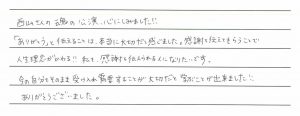 西山さんの魂の公演、心にしみました!!
「ありがとう」と伝えることは、本当に大切だと感じました。感謝を伝えてもらうことで
人生理念がかわる!! 私も、感謝を伝えられる人になりたいです。
今の自分をそのまま受け入れ尊重することが大切だと学ぶことが出来ました。
ありがとうございました。